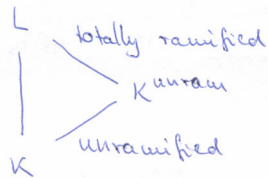 L
totally ramified
K^unram
unramified
K